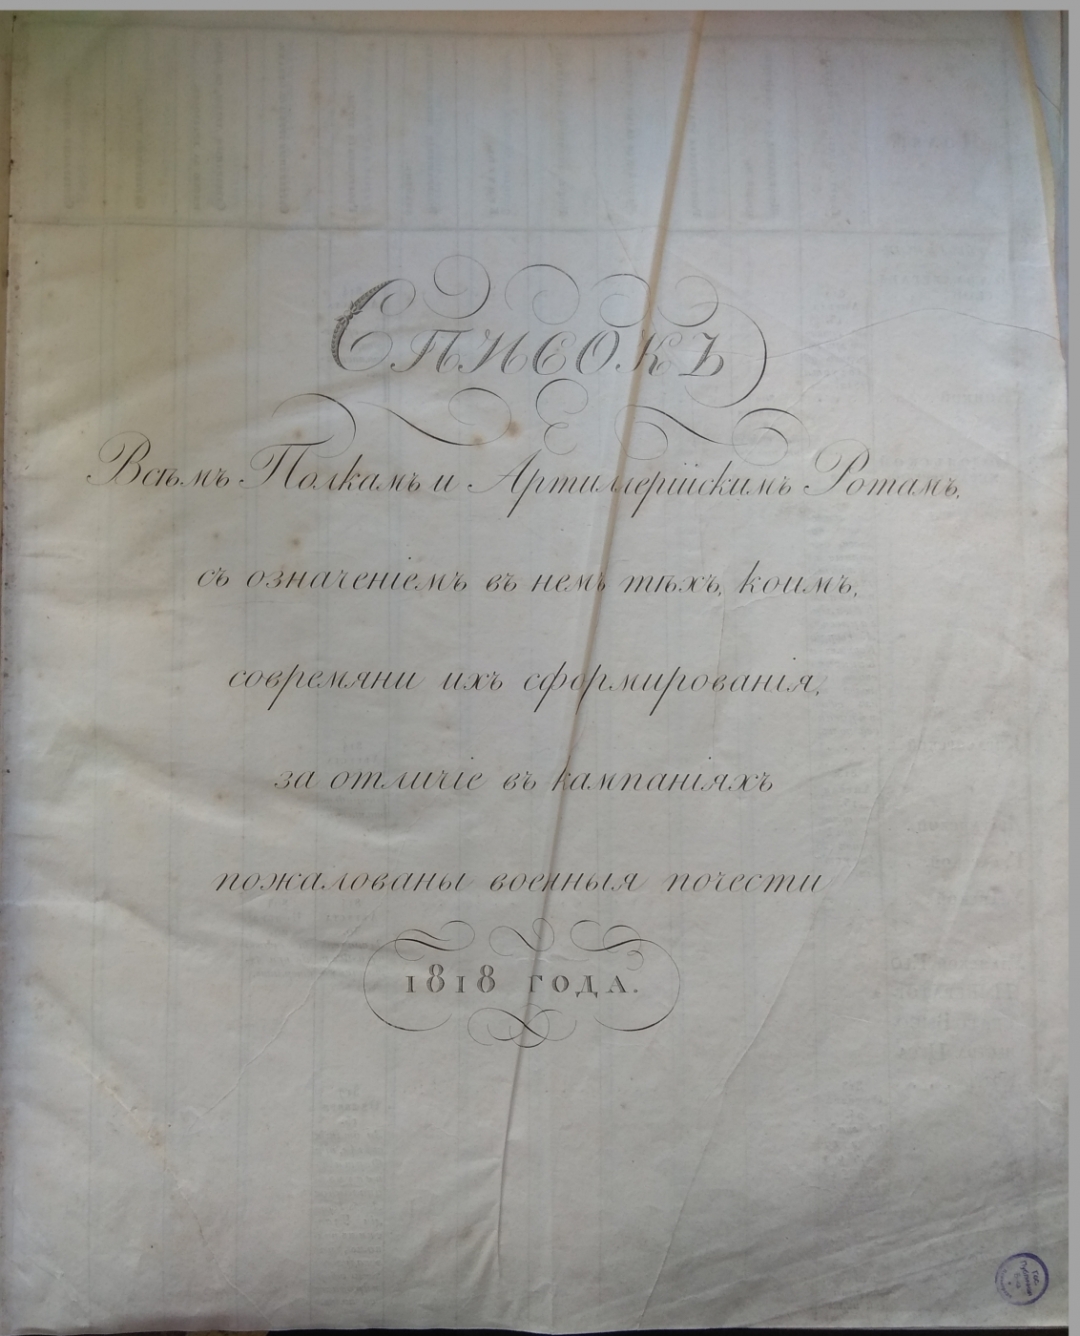 Списокъ
Всѣмъ Полкамъ и Артиллерійскимъ Ротамъ,
съ означеніемъ въ немъ тѣхъ, коимъ,
современи ихъ сформированія,
за отличіе въ кампаніяхъ
пожалованы военныя почести
1818 года.